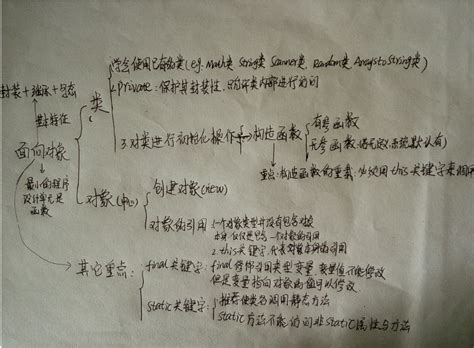 学会使用已有的类(e.g. Math类 String类 Scanner类 Random类 Arrays toString类)
2. private: 保护与封装性,只允许类内部进行访问
封装+继承+多态
基本特征
类
有参函数
3. 对类进行初始化操作 构造函数
无参函数(若无定义,系统默认有)
面向对象
重点: 构造函数的重载: 必须用this关键字来调用
最小的程序
设计单元是
函数
创建对象(new)
对象
对象的引用
1. 一个对象类型并没有包含对象
本身,仅仅是 一个对象的引用
2. this关键字,代表对象本身的引用
其它重点:
final关键字: final修饰引用类型变量,变量值不能修改
但是变量指向对象的值可以修改
static关键字:
推荐使类名调用静态方法
static方法不能访问非static属性与方法